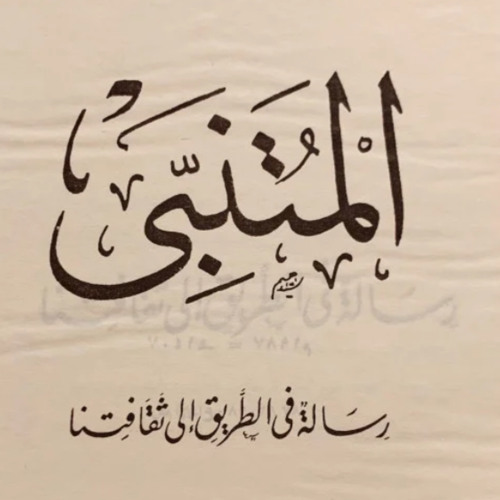 المُتَنَبِّى
رِسَالةٌ فى الطَّرِيقِ إلى ثَقَافَتِنا